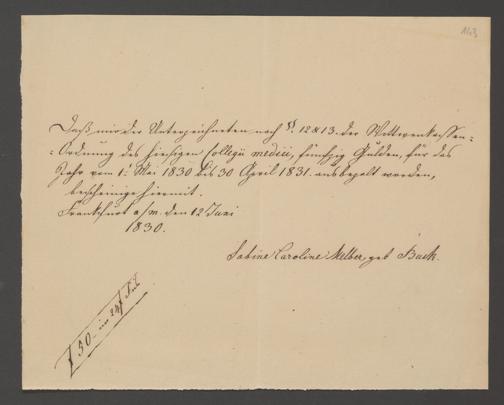 143
Daß mir der Unterzeichneten nach §§. 12 & 13. der Wittwenkassen-
-Ordnung des hiesigen Collegii medici, fünfzig Gulden, für das
Jahr vom 1. Mai 1830 bis 30 April 1831. ausbezalt worden,
bescheinige hiermit.
Frankfurt a/m. den 12 Juni
1830.
Sabine Caroline Melber, geb Buck.
f 50 – im 24f Fuß